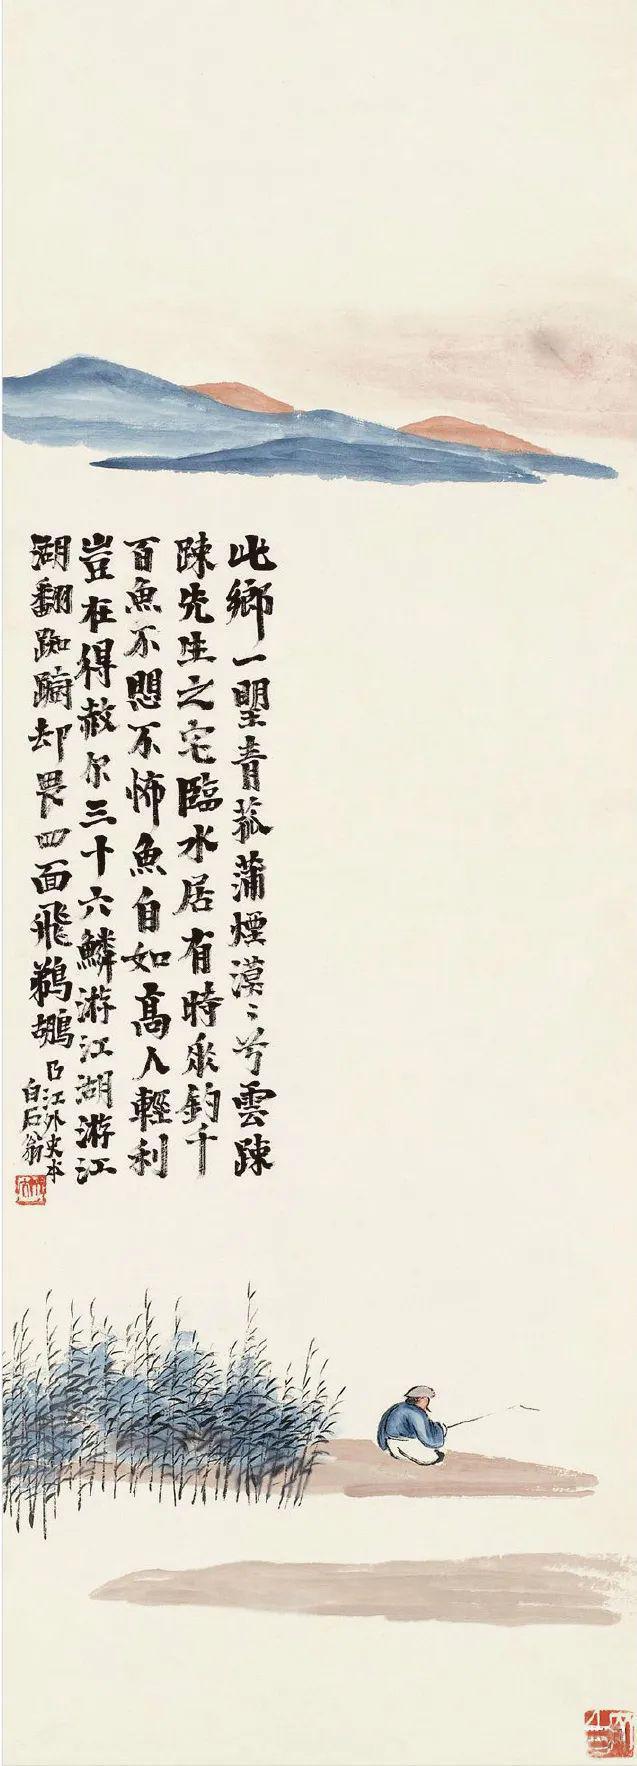 此鄉一望青菰蒲煙漠〻兮雲疎
疎先生之宅臨水居有時垂釣千
百魚不愳不怖魚自如高人輕利
豈在得赦尔三十六鱗游江湖游江
湖翻踟躕却畏四面飛鵜鶘
曲江外史本
白石翁